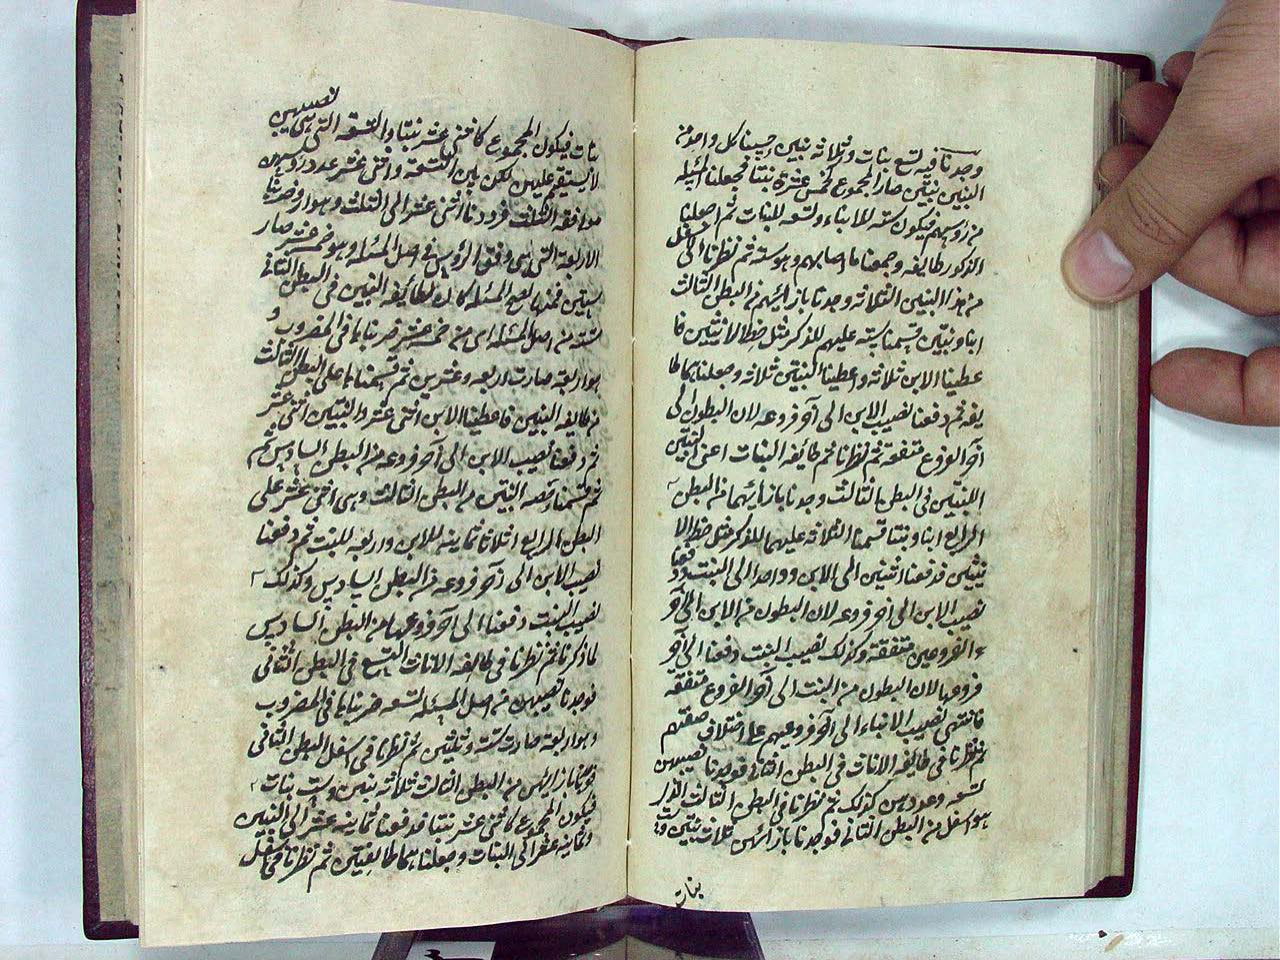 وجدنا فيه تسع بنات وثلاثة بنين حسبنا كل واحد من
البنين بنتين صار المجموع خمس عشرة بنتا فجعلنا المسئلة
من رؤسهم فيكون ستة للابناء وتسعة للبنات ثم جعلنا
الذكور طايفة وجمعنا ما اصابهم وهو ستة ثم نظرنا الى اسفل
من هذا البنين الثلاثة وجدنا بازائهم من البطن الثالث
ابنا وبنتين قسمنا ستة عليهم للذكر مثل حظ الانثيين فا
عطينا الابن ثلاثة واعطينا البنتين ثلاثة وجعلناهما طا
يفة ثم دفعنا نصيب الابن الى آخر فروعه لان البطون الى
آخر الفروع متفقة ثم نظرنا ثم طائفة البنات اعنى البنتين
اللتين في البطن الثالث وجدنا بازائهما من البطن
الرابع ابنا وبنتا قسمنا الثلاثة عليهما للذكر مثل حظ الا
نثيين فدفعنا اثنين الى الابن وواحدا الى البنت ودفعنا
نصيب الابن الى آخر فروعه لان البطون من الابن الى آخر
الفروعين متفقة وكذلك نصيب البنت دفعنا الى آخر
فروعها لان البطون من البنت الى آخر الفروع متفقة
فانتهى نصيب الابناء الى آخر فروعهم على اختلاف صفتهم
ثم نظرنا في طايفة الاناث في البطن الثاني فوجدنا نصيبهن
تسعة وعددهن كذلك ثم نظرنا في البطن الثالث الذى
هو اسفل من البطن الثاني فوجدنا بازائهن ثلاث بنين وست
بنات
بنات فيكون المجموع كاثنى عشر بنتا والتسعة التى هى نصيبهن
لا يستقيم عليهن لكن بين التسعة واثنى عشر عدد رؤسهن
موافقة بالثلث فرددنا اثنى عشر الى الثلث وهو اربعة وضربنا
الاربعة التى هى وفق الرؤس في اصل المسئلة وهو خمسة عشر صار
ستين فمنها تصح المسئلة كان لطايفة البنين في البطن الثاني
ستة من اصل المسئلة اى من خمسة عشر ضربناها في المضروب و
هو اربعة صارت اربعة وعشرين ثم قسمناها على البطن الثالث
من طايفة البنين فاعطينا الابن اثنى عشر والبنتين اثنى عشر
ثم دفعنا نصيب الابن الى آخر فروعه من البطن السادس ثم
قسمنا حصة البنتين من البطن الثالث وهى اثنى عشر على
البطن الرابع اثلاثا ثمانية للابن واربعة للبنت ثم دفعنا
نصيب الابن الى آخر فروعه من البطن السادس وكذلك
نصيب البنت دفعنا الى آخر فروعها من البطن السادس
لما ذكرنا ثم نظرنا في طايفة الاناث التسع في البطن الثاني
فوجدنا نصيبهن من اصل المسئلة تسعة ضربناها في المضروب
وهو اربعة صارت ستة وثلثين ثم نظرنا في اسفل البطن الثاني
فوجدنا بازائهن من البطن الثالث ثلاثة بنين وست بنات
فيكون المجموع كاثنى عشر بنتا فدفعنا ثمانية عشر الى البنين
وثمانية عشر الى البنات وجعلناهما طايفتين ثم نظرنا في اسفل